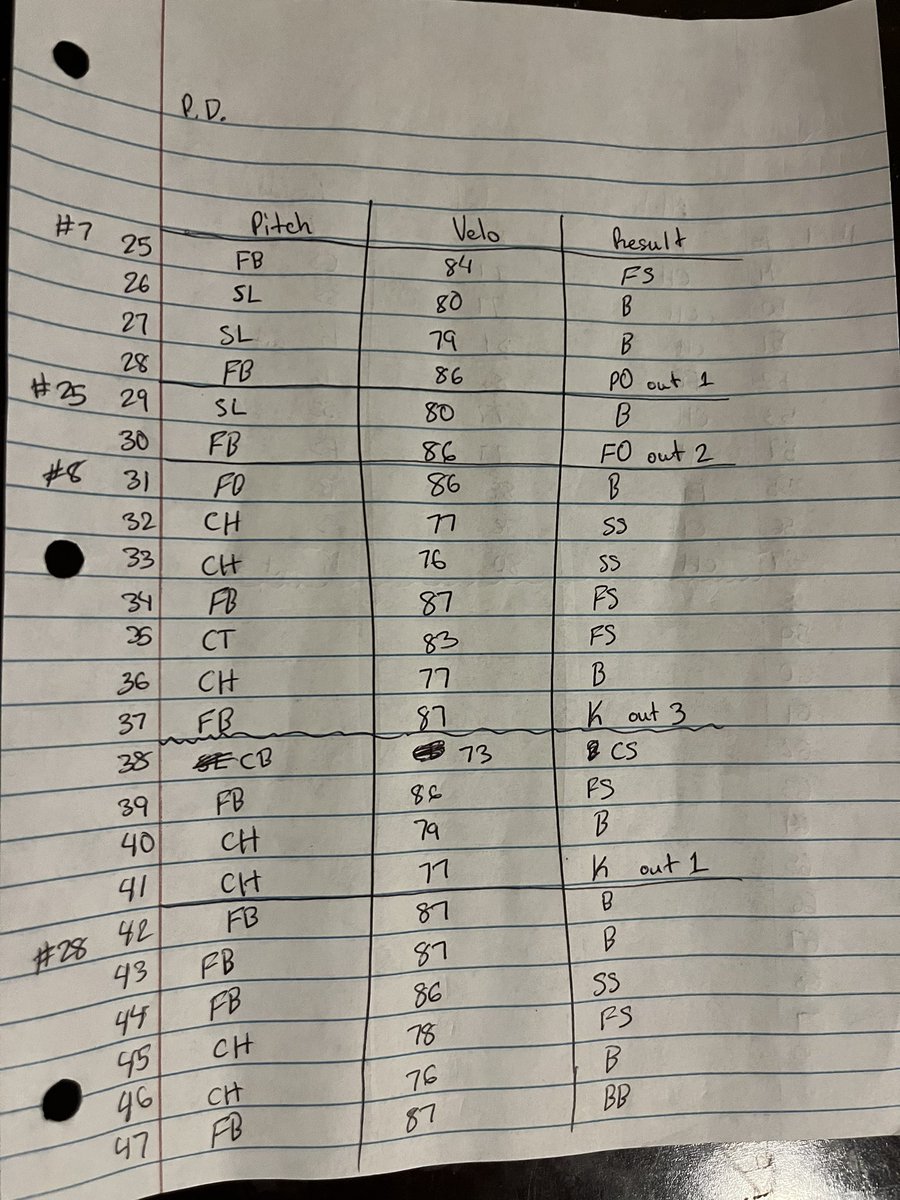 P.D.
Pitch Velo Result
#7 25 FB 84 FS
26 SL 80 B
27 SL 79 B
28 FB 86 PO out 1
#25 29 SL 80 B
30 FB 86 FO out 2
#8 31 FB 86 B
32 CH 77 SS
33 CH 76 SS
34 FB 87 FS
35 CT 83 FS
36 CH 77 B
37 FB 87 K out 3
38 CB 73 CS
39 FB 86 FS
40 CH 79 B
41 CH 77 K out 1
42 FB 87 B
#28 43 FB 87 B
44 FB 86 SS
45 CH 78 FS
46 CH 76 B
47 FB 87 BB